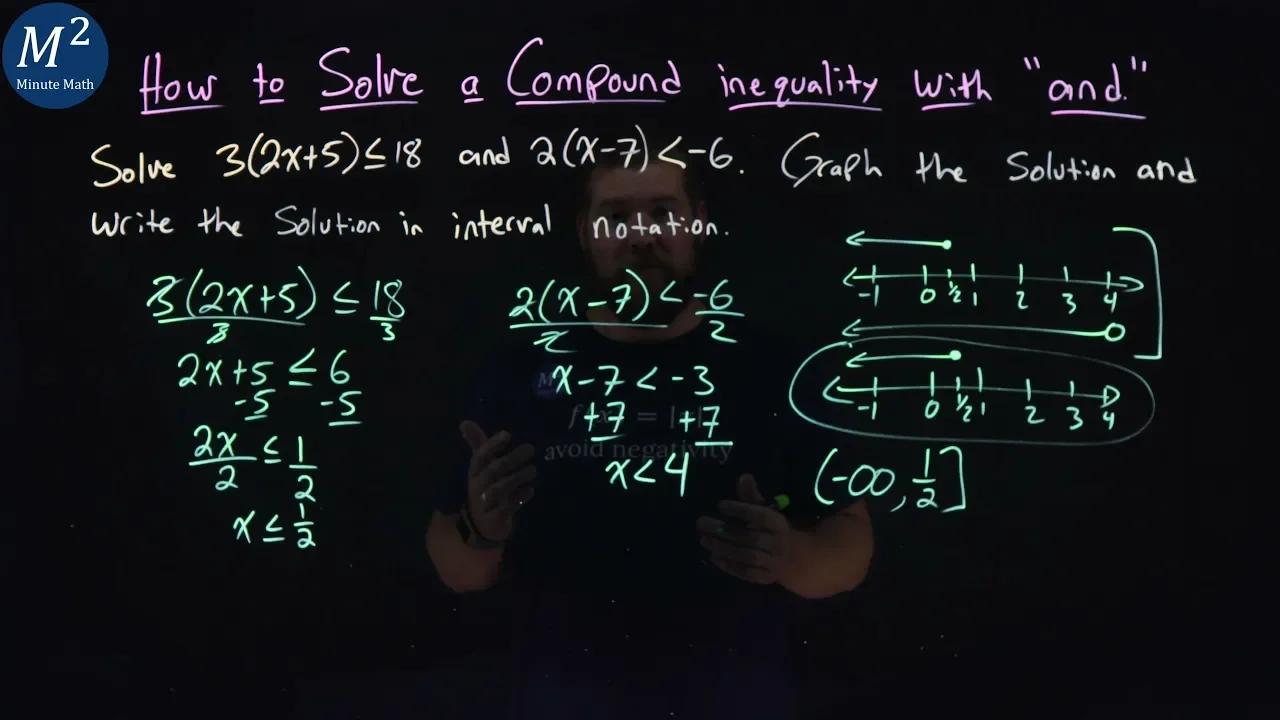 M²
Minute Math
How to Solve a Compound inequality with "and."
Solve 3(2x+5) ≤ 18 and 2(x-7) < -6. Graph the Solution and
write the Solution in interval notation.
3(2x+5) ≤ 18
3 3
2x+5 ≤ 6
-5 -5
2x ≤ 1
2 2
x ≤ 1/2
2(x-7) < -6
2 2
x-7 < -3
+7 +7
x < 4
-1 0 1/2 1 2 3 4
-1 0 1/2 1 2 3 4
(-∞, 1/2]
avoid negativity